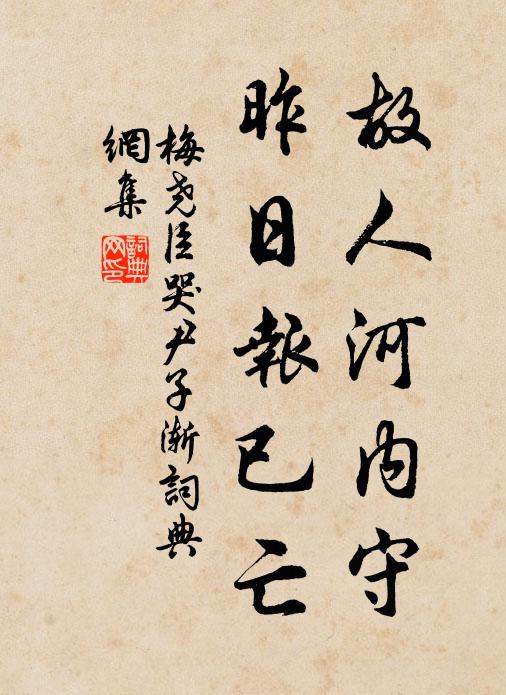 故人河内守
昨日報已亡
梅堯臣哭尹子漸詞典
網集
詞典
网印